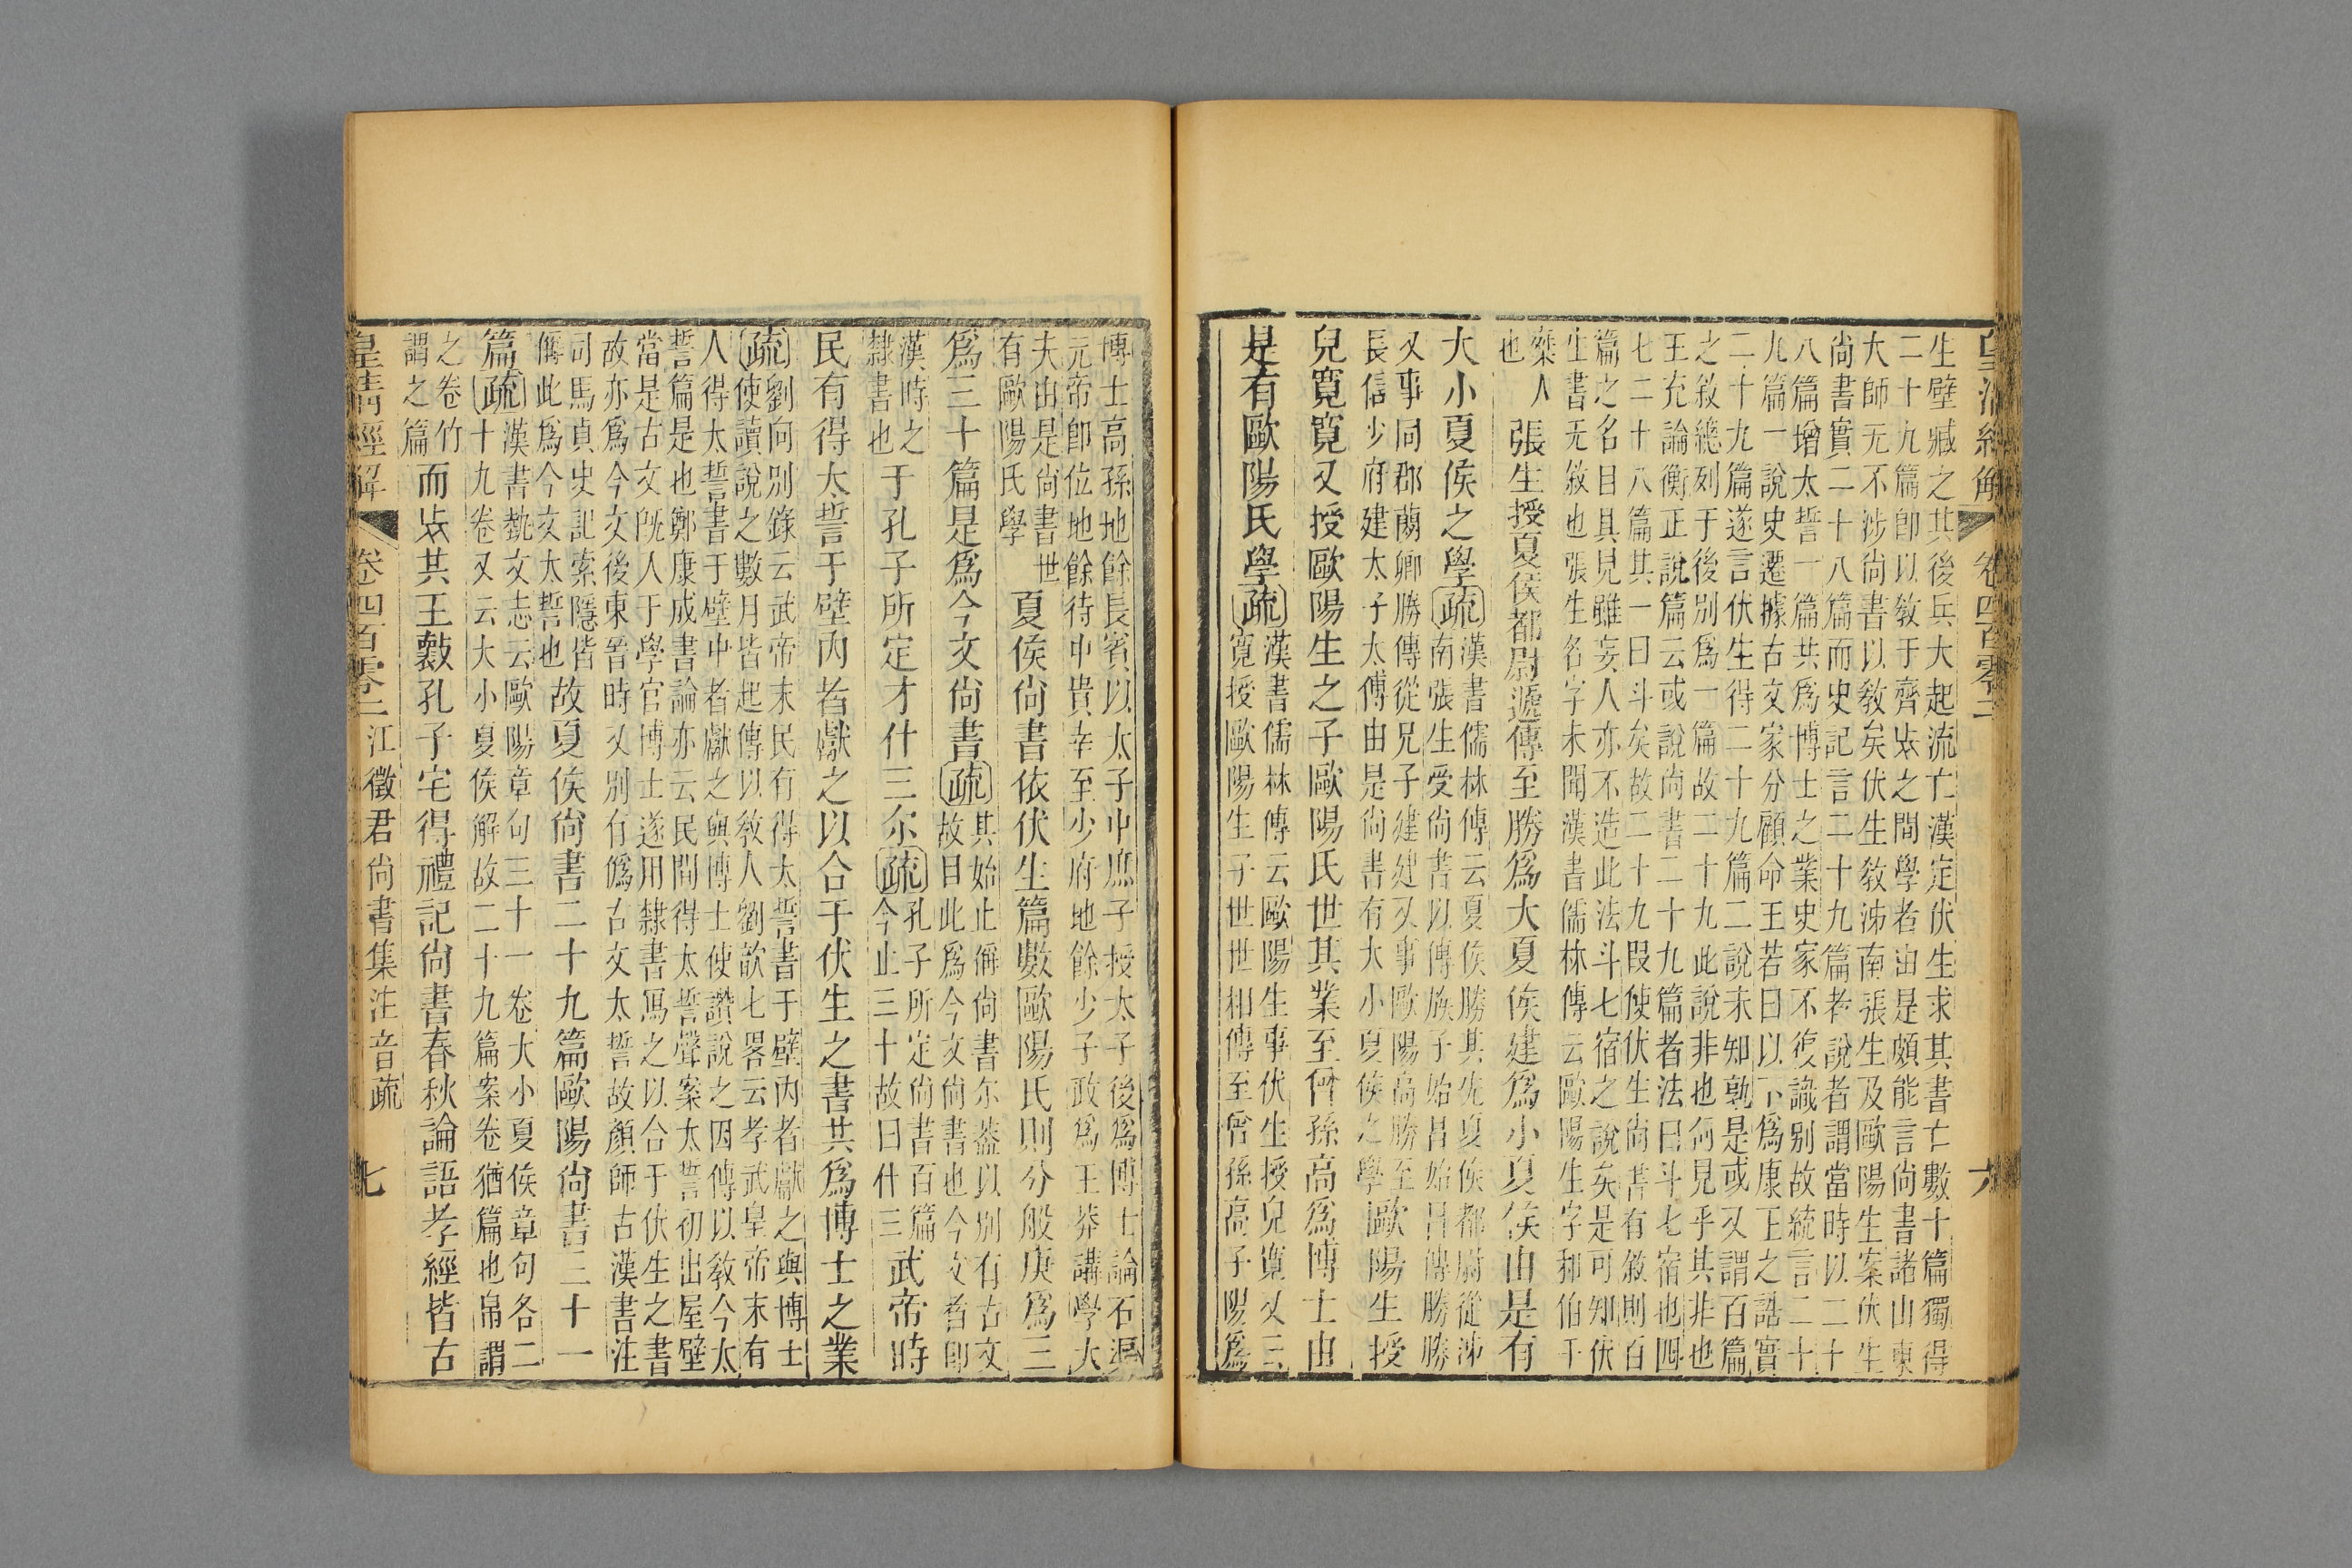 皇清經解 卷四百零二 六
生壁臧之其後兵大起流亡漢定伏生求其書亡數十篇獨得
二十九篇卽以敎于齊𡵒之間學者由是頗能言尙書諸山東
大師无不涉尙書以敎矣伏生敎泲南張生及歐陽生案伏生
尙書實二十八篇而史記言二十九篇者說者謂當時以二十
八篇增太誓一篇共爲博士之業史家不復識別故統言二十
九篇一說史遷據古文家分顧命王若曰以下爲康王之誥實
二十九篇遂言伏生得二十九篇二說未知孰是或又謂百篇
之敘總列于後別爲一篇故二十九此說非也何見乎其非也
王充論衡正說篇云或說尙書二十九篇者法曰斗七宿也四
七二十八篇其一曰斗矣故二十九叚使伏生尙書有敘則百
篇之名目具見雖妄人亦不造此法斗七宿之說矣是可知伏
生書无敘也張生名字未聞漢書儒林傳云歐陽生字和伯千
椉人
也 張生授夏侯都尉遞傳至勝爲大夏侯建爲小夏侯由是有
大小夏侯之學疏漢書儒林傳云夏侯勝其先夏侯都尉從泲
南張生受尙書以傳族子始昌始昌傳勝勝
又事同郡蕑卿勝傳從兄子建建又事歐陽高勝至
長信少府建太子太傅由是尙書有大小夏侯之學 歐陽生授
兒寬寬又授歐陽生之子歐陽氏世其業至曾孫高爲博士由
是有歐陽氏學疏漢書儒林傳云歐陽生事伏生授兒寬又三
寬授歐陽生子世世相傳至曾孫高子陽爲
博士高孫地餘長賓以太子中庶子授太子後爲博士論石渠
元帝卽位地餘侍中貴幸至少府地餘少子政爲王莽講學大
夫由是尙書世
有歐陽氏學 夏侯尙書依伏生篇數歐陽氏則分般庚爲三
爲三十篇是爲今文尙書疏其始止偁尙書尔葢以別有古文
故目此爲今文尙書也今文者卽
漢時之
隸書也于孔子所定才什三尔疏孔子所定尙書百篇
今止三十故曰什三武帝時
民有得太誓于壁內者獻之以合于伏生之書共爲博士之業
疏劉向別錄云武帝末民有得太誓書于壁內者獻之與博士
使讀說之數月皆起傳以敎人劉歆七畧云孝武皇帝末有
人得太誓書于壁中者獻之與博士使讚說之因傳以敎今太
誓篇是也鄭康成書論亦云民間得太誓聲案太誓初出屋壁
當是古文旣入于學官博士遂用隸書寫之以合于伏生之書
故亦爲今文後東晉時又別有僞古文太誓故顏師古漢書注
司馬貞史記索隱皆
偁此爲今文太誓也 故夏侯尙書二十九篇歐陽尙書三十一
篇疏漢書蓺文志云歐陽章句三十一卷大小夏侯章句各二
十九卷又云大小夏侯解故二十九篇案卷猶篇也帛謂
之卷竹
謂之篇而𡵒其王斀孔子宅得禮記尙書春秋論語孝經皆古
皇清經解 卷四百零二 江徵君尙書集注音疏 七